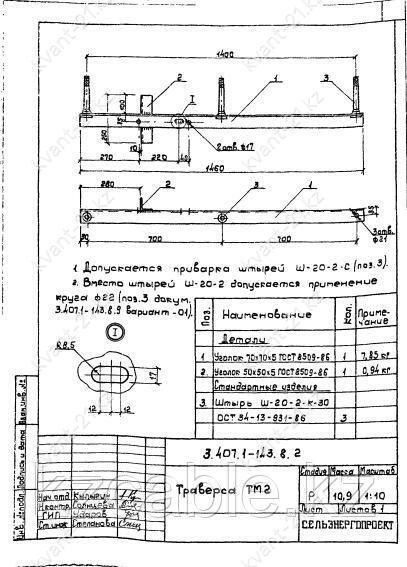 1400
2
I
1
3
100
15
250
10
270
220
40
2отв. ф17
1460
280
2
3
1
30
700
700
3отв.
ф21
1. Допускается приварка штырей Ш-20-2-С (поз.3).
2. Вместо штырей Ш-20-2 допускается применение
круга ф22 (поз.3 докум.
3.407.1-143.8.9 вариант -01).
I
R8,5
17
12
12
Поз.
Наименование
Кол.
Примечание
Детали
1 Уголок 70х70х5 ГОСТ 8509-86 1 7,85 кг
2. Уголок 50х50х5 ГОСТ 8509-86 1 0,94 кг
Стандартные изделия
3. Штырь Ш-20-2-К-30
ОСТ 34-13-931-86 3
3.407.1-143.8.2
Траверса ТМ2
Стадия Масса Масштаб
Р 10,9 1:10
Лист Листов 1
СЕЛЬЭНЕРГОПРОЕКТ
Нач. отд.
Н.контр. Солнцева
ГИП Ударов
Ст.инж. Степанова
Инв. № подл. Подпись и дата Взам.инв.№
kvant-21.kz